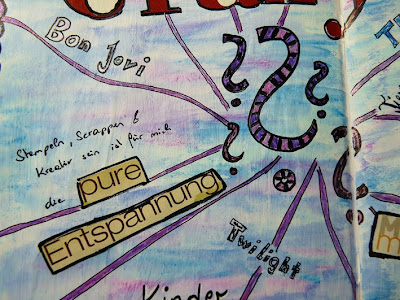 Bon Jovi
Stempeln, Scrappen &
Kreativ sein ist für mich
die pure
Entspannung
Twilight
Kinder